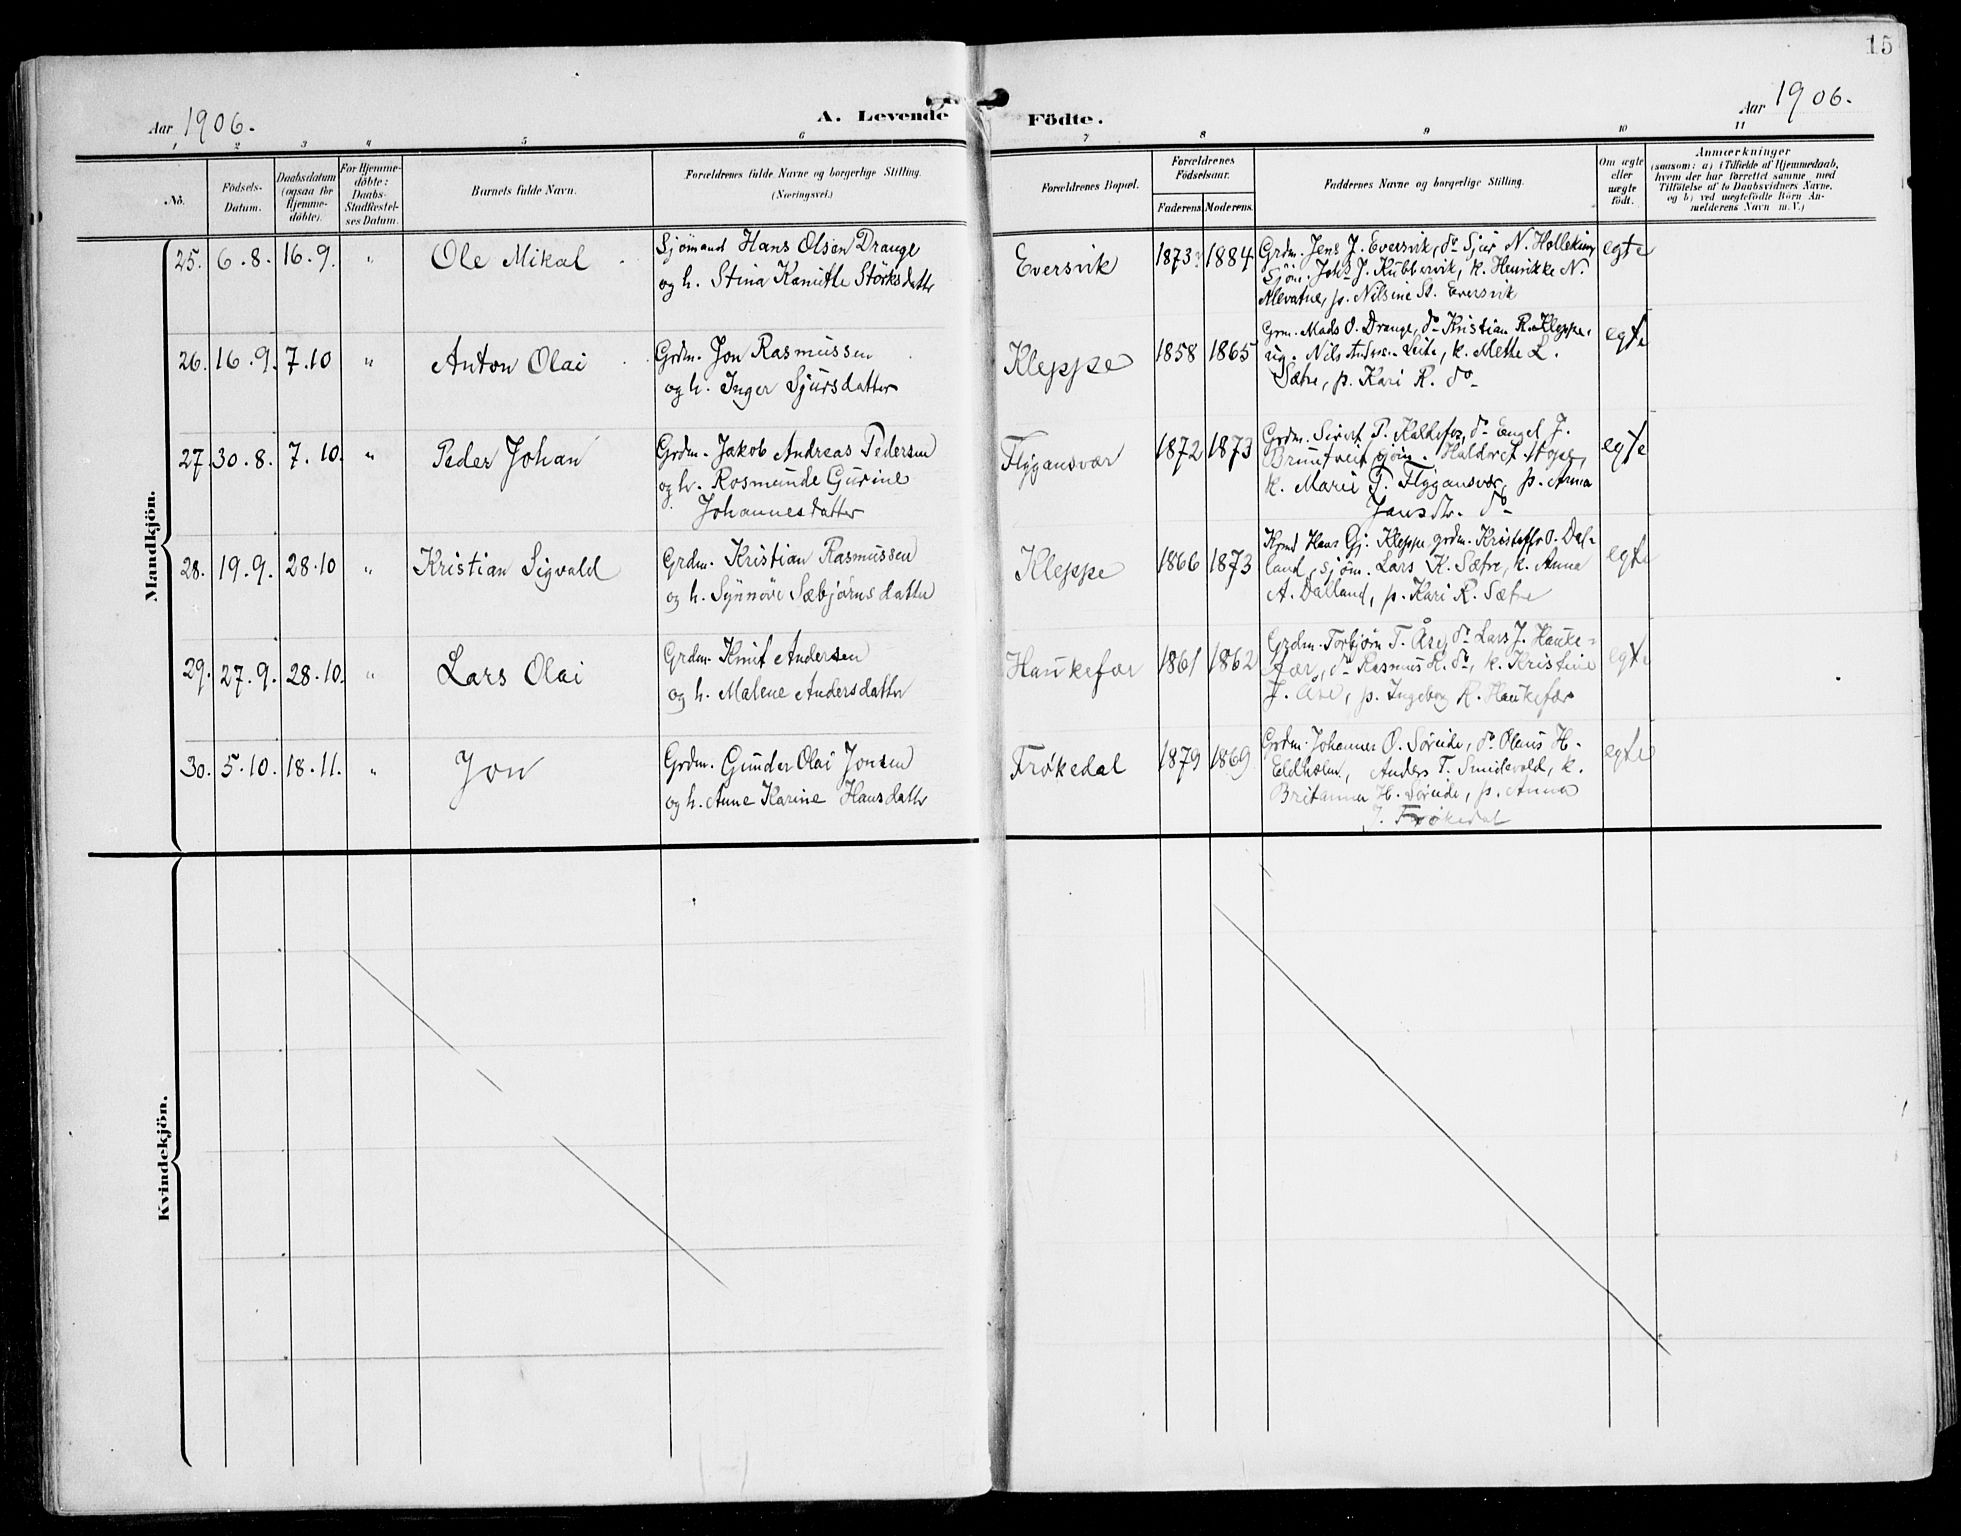 15
Aar 1906.
A. Levende Födte.
Aar 1906.
1 2 3 4 5 6 7 8 9 10 11
No.
Födsels-
Datum.
Daabsdatum
(ogsaa for
Hjemme-
döbte).
For Hjemme-
döbte:
Daabs-
Stadfæstel-
ses Datum.
Barnets fulde Navn.
Forældrenes fulde Navne og borgerlige Stilling.
(Næringsvei.)
Forældrenes Bopæl.
Forældrenes
Födselsaar.
Faderens. Moderens.
Faddernes Navne og borgerlige Stilling.
Om ægte
eller
uægte
födt.
Anmærkninger
(saasom: a) i Tilfælde af Hjemmedaab,
hvem der har forrettet samme, med
Tilföielse af to Daabsvidners Navne,
og b) ved uægtefödte Börn An-
melderens Navn m. V.)
Mandkjön.
25. 6.8. 16.9. " Ole Mikal
Sjømand Hans Olsen Drange
og h. Stina Kamitte Størksdattr
Eversvik 1873 1884
Grdm. Jens J. Eversvik, do Sjur N.
Sjøm. Johs J. Kubbervik, k. Henrikke N.
Alevatne, p. Nilsine St. Eversvik
egte
26. 16.9. 7.10 " Anton Olai
Grdm. Jon Rasmussen
og h. Inger Sjursdatter
Kleppe 1858 1865
Grm. Mads O. Drange, do Kristian R. Kleppe,
ug. Nils Anders. Leite, k. Mette L.
Sætre, p. Kari R. do
egte
27. 30.8. 7.10. " Peder Johan
Grdm. Jakob Andreas Pedersen
og h. Rosmunde Gurine
Johannesdatter
Flygansvær 1872 1873
Grdm. Sivert P. Kaldefos, do Engel J.
Bruntveit, sjøm. Haldret Stope,
k. Marie P. Flygansvær, p. Anna
Jansdtr. do
egte
28. 19.9. 28.10 " Kristian Sigvald
Grdm. Kristian Rasmussen
og h. Synnøve Sæbjørnsdatter
Kleppe 1866 1873
Hans Gj. Kleppe, grdm. Kristoffr O. Dal-
land, sjøm. Lars K. Sætre, k. Anna
A. Dalland, p. Kari R. Sætre
egte
29. 27.9. 28.10. " Lars Olai
Grdm. Knut Andersen
og h. Malene Andersdatter
Haukefær 1861 1862
Grdm. Torbjørn T. Åse, do Lars J. Hauke-
fær, do Rasmus K. do, k. Kristine
J. Åse, p. Ingeborg K. Haukefær
egte
30. 5.10. 18.11. " Jon
Grdm. Gunder Olai Jonsen
og h. Anne Karine Hansdattr
Frøkedal 1879 1869
Grdm. Johannes O. Søreide, do Olaus H.
Eldholm, Anders T. Smidevold, k.
H. Søreide, p. Anna
J. Frøkedal
egte
Kvindekjön.